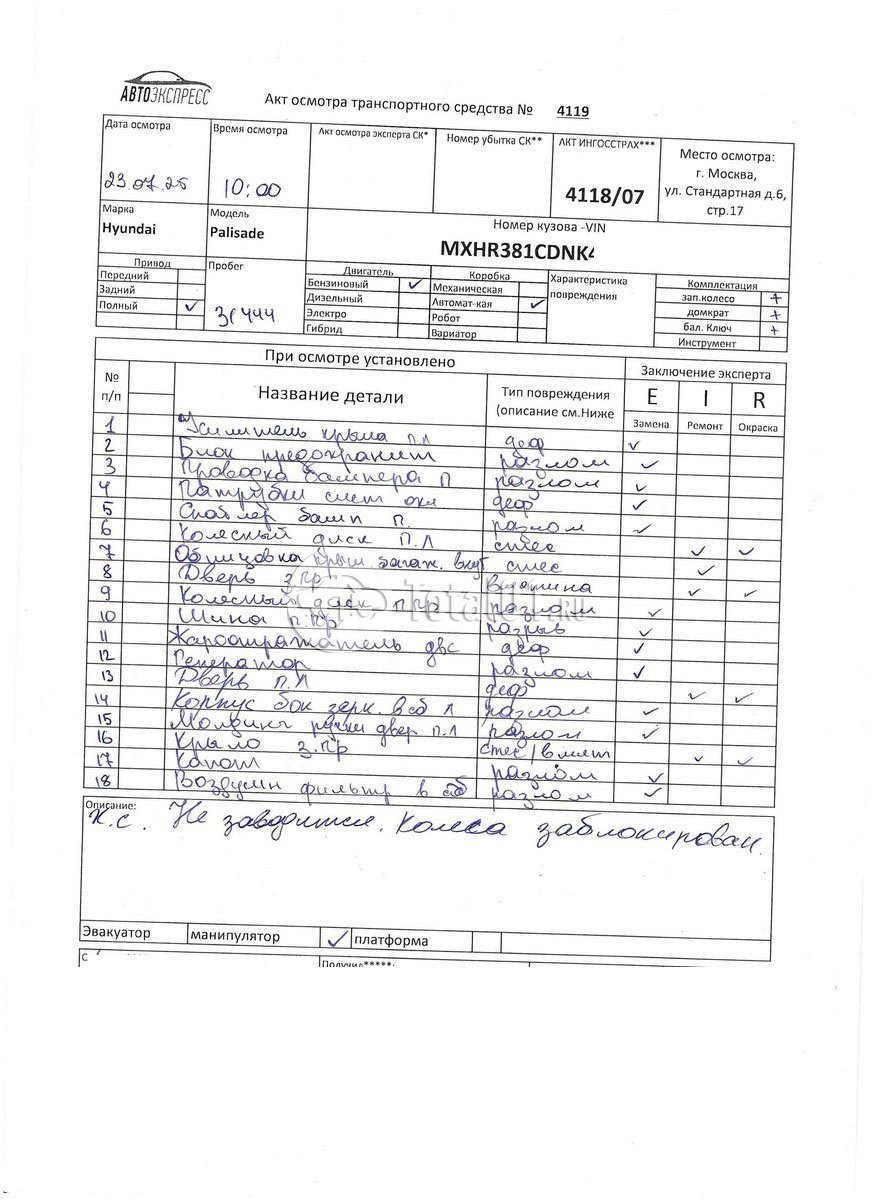 АВТОЭКСПРЕСС
Акт осмотра транспортного средства № 4119
Дата осмотра Время осмотра Акт осмотра эксперта СК* Номер убытка СК** АКТ ИНГОССТРАХ*** Место осмотра:
г. Москва,
23.07.25 10:00 4118/07 ул. Стандартная д.6,
стр.17
Марка Модель Номер кузова -VIN
Hyundai Palisade MXHR381CDNK4
Привод Пробег Двигатель Коробка Характеристика повреждения Комплектация
Передний Бензиновый ✓ Механическая зап.колесо +
Задний Дизельный Автомат-кая ✓ домкрат +
Полный ✓ Электро Робот бал. Ключ +
Гибрид Вариатор Инструмент
При осмотре установлено Заключение эксперта
№ п/п Название детали Тип повреждения (описание см.Ниже E I R
Замена Ремонт Окраска
1 Усилитель крыла п.л деф ✓
2 Блок предохранит разлом ✓
3 Проводка бампера П разлом ✓
4 Патрубки сист охл деф ✓
5 Спойлер бамп п. разлом ✓
6 Колесный диск П.Л стес ✓ ✓
7 Облицовка крыш. багаж. внут стес ✓
8 Дверь з.пр вмятина ✓ ✓
9 Колесный диск п пр разлом ✓
10 Шина п.пр разрыв ✓
11 Жароотражатель двс деф ✓
12 Генератор разлом ✓
13 Дверь п.л деф ✓ ✓
14 Корпус бок зерк. в сб л разлом ✓
15 Молдинг ручки двер п.л разлом ✓
16 Крыло з.пр стес/вмят ✓ ✓
17 Капот разлом ✓
18 Воздушн фильтр в сб разлом ✓
Описание:
К.с. Не заводится. Колеса заблокирован.
Эвакуатор манипулятор ✓ платформа
Получил*****: